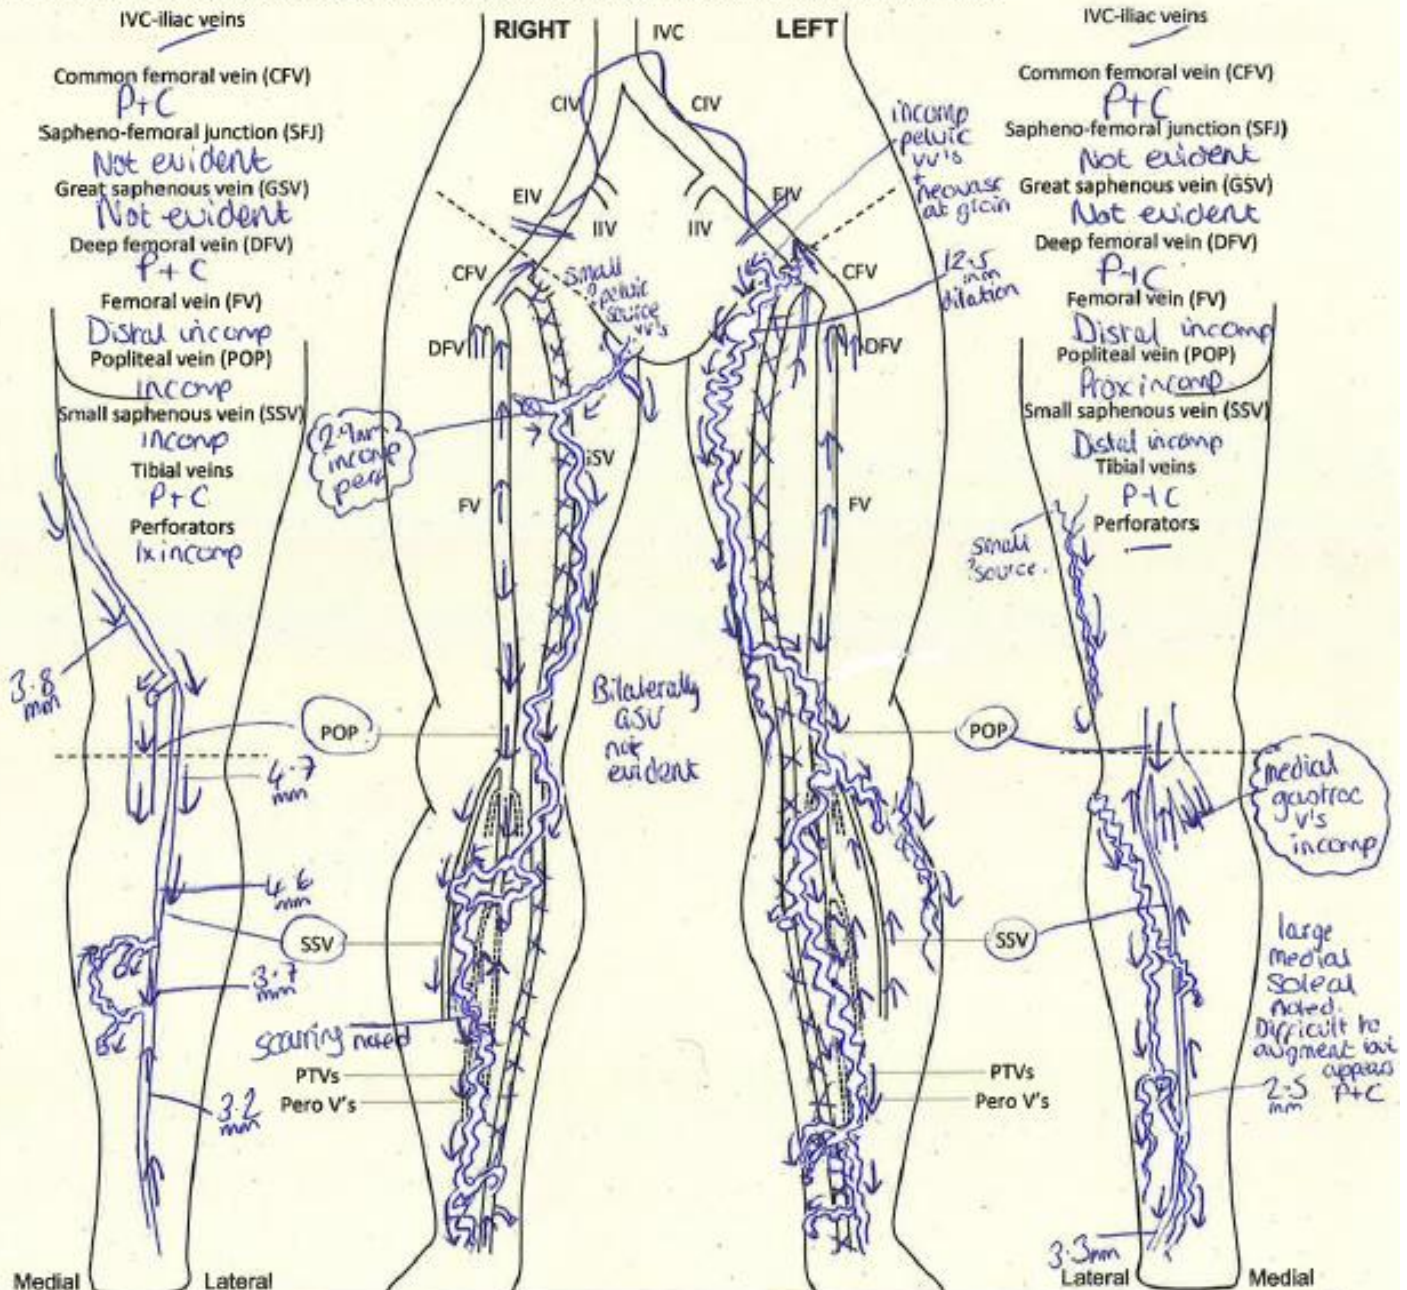 IVC-iliac veins
Common femoral vein (CFV)
P+C
Sapheno-femoral junction (SFJ)
Not evident
Great saphenous vein (GSV)
Not evident
Deep femoral vein (DFV)
P+C
Femoral vein (FV)
Distal incomp
Popliteal vein (POP)
incomp
Small saphenous vein (SSV)
incomp
Tibial veins
P+C
Perforators
1x incomp
3.8
mm
4.7
mm
4.6
mm
3.7
mm
3.2
mm
Medial
Lateral
RIGHT
IVC
LEFT
CIV
CIV
EIV
EIV
IIV
IIV
CFV
CFV
small
?pelvic
source
vv's
incomp
pelvic
vv's
+
neovasc
at groin
12.5
mm
dilation
DFV
DFV
2.9mm
incomp
perf
GSV
FV
FV
Bilaterally
GSV
not
evident
POP
POP
SSV
SSV
scarring noted
PTVs
Pero V's
PTVs
Pero V's
IVC-iliac veins
Common femoral vein (CFV)
P+C
Sapheno-femoral junction (SFJ)
Not evident
Great saphenous vein (GSV)
Not evident
Deep femoral vein (DFV)
P+C
Femoral vein (FV)
Distal incomp
Popliteal vein (POP)
Prox incomp
Small saphenous vein (SSV)
Distal incomp
Tibial veins
P+C
Perforators
small
?source.
medial
gastroc
v's
incomp
large
medial
soleal
noted.
Difficult to
augment but
appears
P+C
2.5
mm
3.3mm
Lateral
Medial